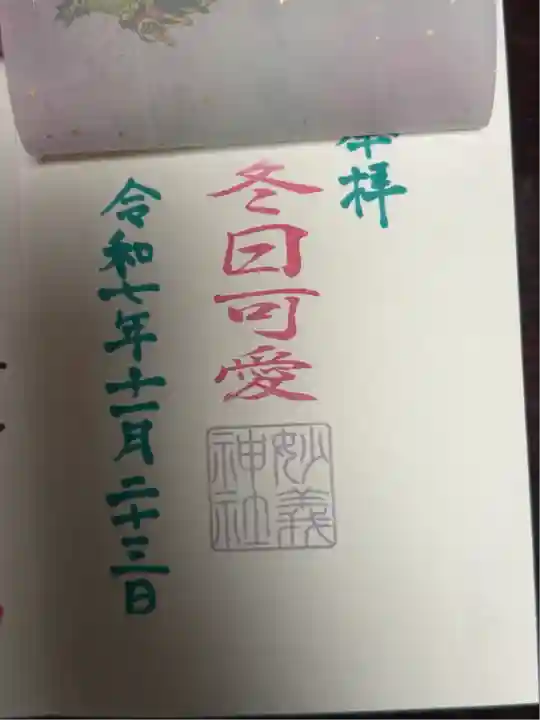 拝
冬日可愛
妙義
神社
令和七年十一月二十三日